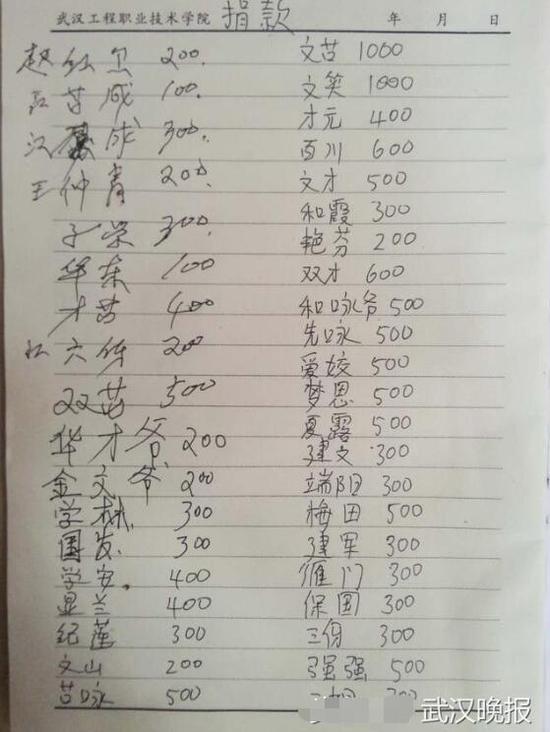 武汉工程职业技术学院 捐款 年 月 日
赵红卫 200.
苕成 100.
汉成 300.
王仲青 200.
子荣 300.
华东 100
才苕 400
六仔 200
双苕 500
华才爷 200
金文爷 200
学林 300
国发 300
学安. 400
显兰 400
纪莲 300
文山 200
苕咏 500
文苕 1000
文笑 1000
才元 400
百川 600
文才 500
和霞 300
艳芬 200
双才 600
和咏爷 500
先咏 500
爱姣 500
梦思 500
夏露 500
建文 300
端阳 300
梅田 500
建军 300
雁门 300
保国 300
三份 300
强强 500
300
武汉晚报